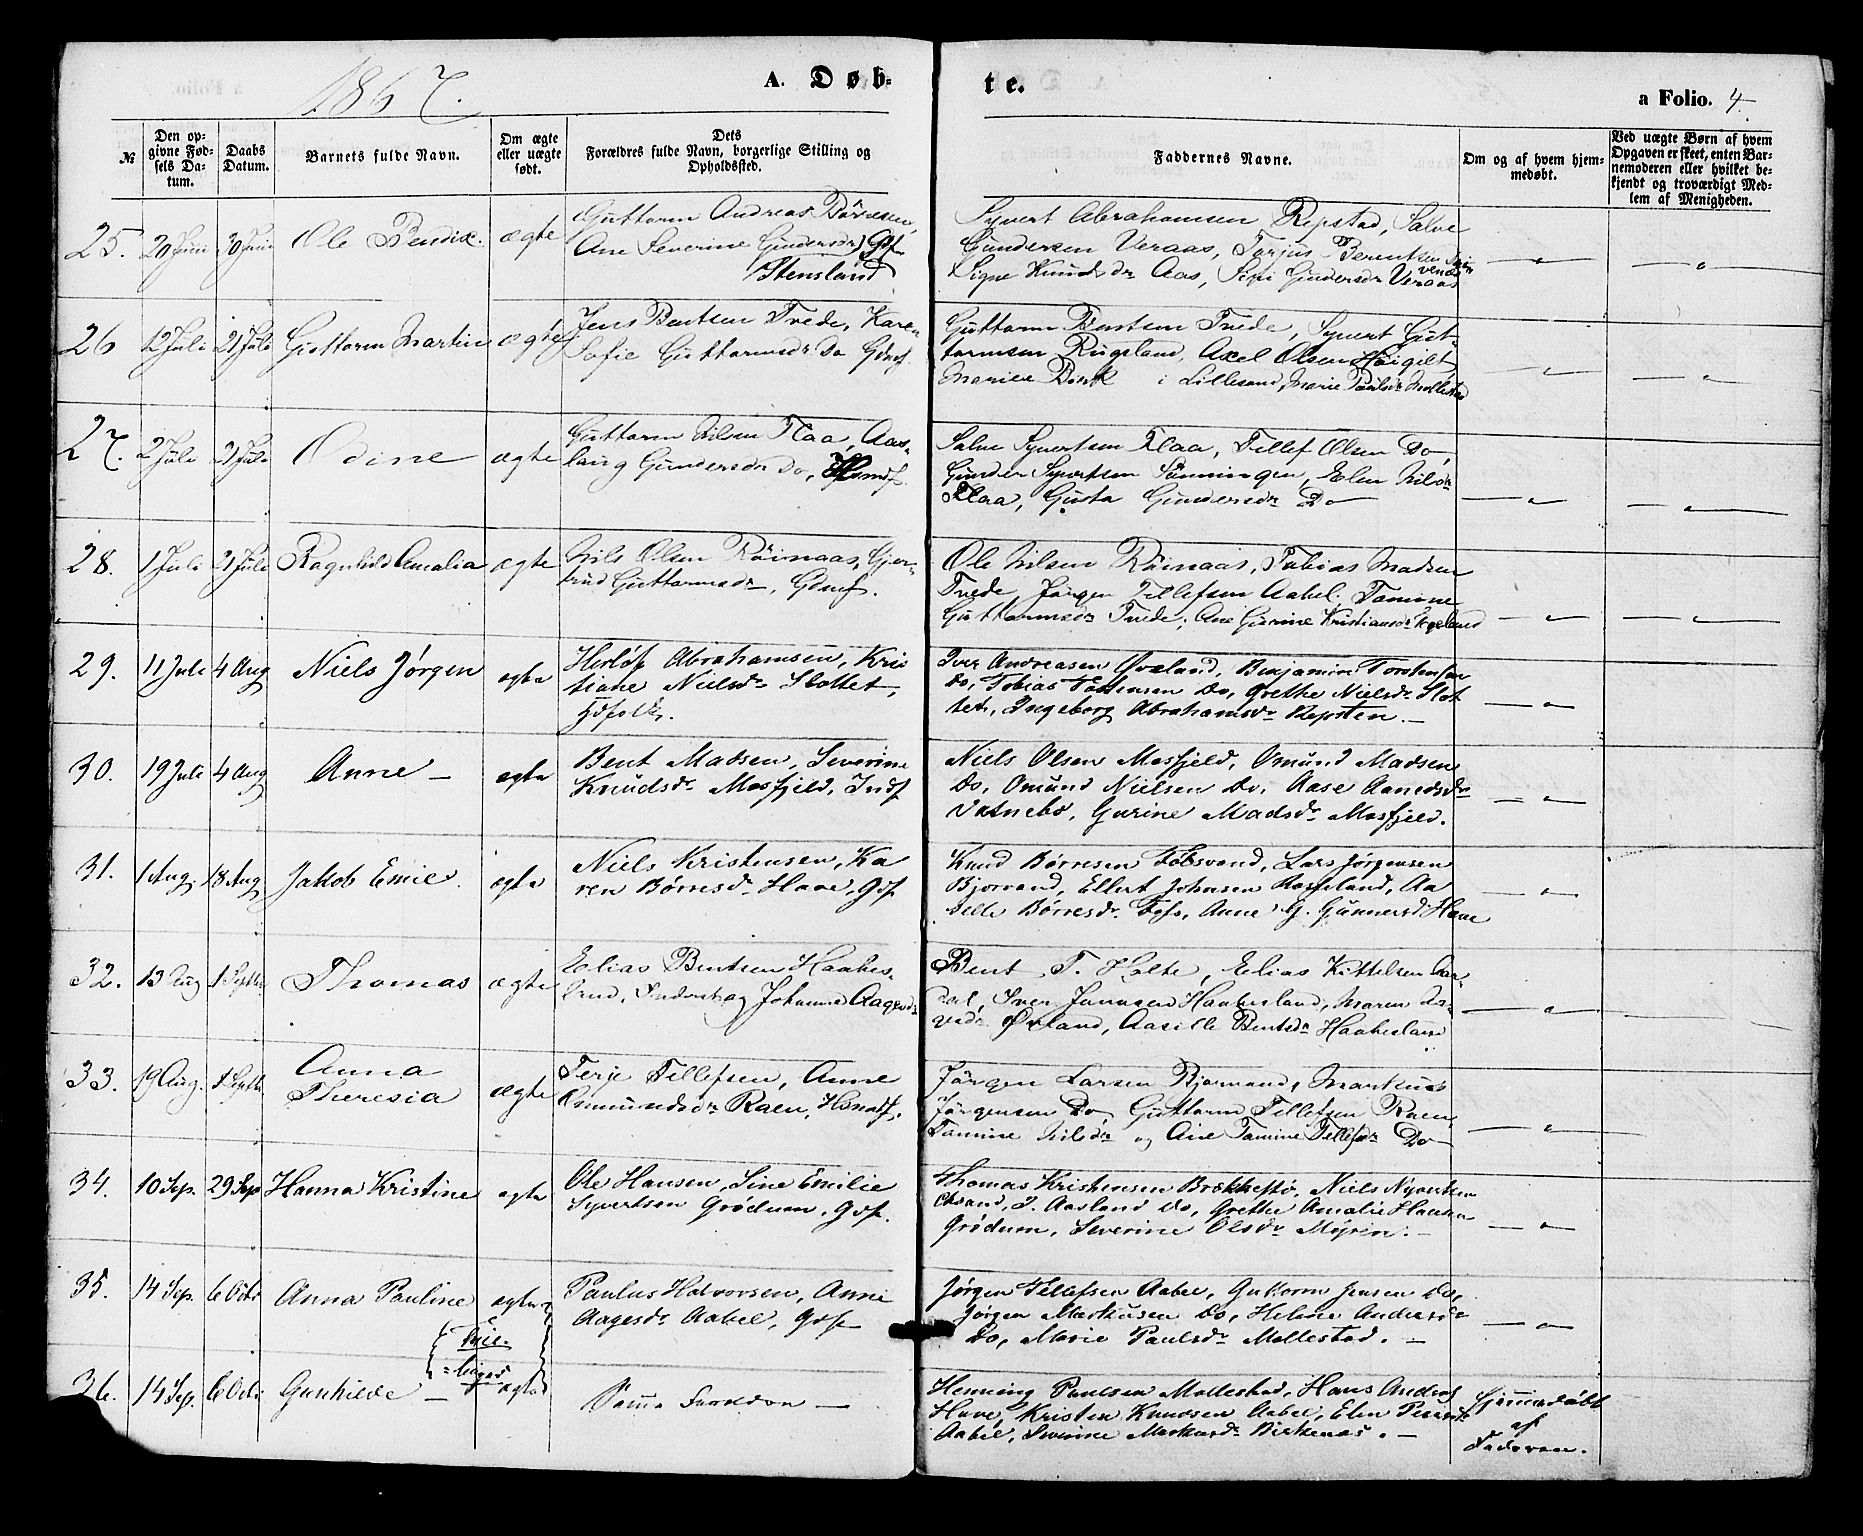 1867.
A. Døb-
te.
a Folio. 4.
№
Den op-
givne Fød-
sels Da-
tum.
Daabs
Datum.
Barnets fulde Navn.
Om ægte
eller uægte
født.
Dets
Forældres fulde Navn, borgerlige Stilling og
Opholdssted.
Faddernes Navne.
Om og af hvem hjem-
medøbt.
Ved uægte Børn af hvem
Opgaven er skeet, enten Bar-
nemoderen eller hvilket be-
kjendt og troværdigt Med-
lem af Menigheden.
25. 20 Juni 30 Juni Ole Bendix. ægte
Guttorm Andreas
Ane Severine Gundersdr
Stensland
Syvert Abrahamsen Repstad, Salve
Gundersen Veraas, Torjus Berentsen
Signe Knudsdr Aas, Sefi Gundersdr Veraas
26 12 Juli 21 Juli Guttorm Martin ægte
Jens Bentsen Tvede, Karen
Sofie Guttormsdr Do Gdmf.
Guttorm Bentsen Tvede, Syvert Gut-
tormsen Rugsland, Axel Olsen
i Lillesand, Marie Paulsdr Mollestad
27. 2 Juli 21 Juli Odine ægte
Guttorm Nilsen Flaa, Aas-
laug Gundersdr Do,
Salve Syvertsen Flaa, Tellef Olsen Do,
Gunder Syvertsen Sønningen, Elen Nilsdr
Flaa, Gusta Gundersdr Do
28. 1 Juli 21 Juli Ragnhild Amalia ægte
Nils Olsen Røinaas, Gjer-
trud Guttormsdr, Gdmf.
Ole Nilsen Røinaas, Tobias Madsen
Tvede, Jørgen Tellefsen Aabel, Tomine
Guttormsdr Tvede, Ane Gurine Kristiansdr
29. 11 Juli 4 Aug Niels Jørgen ægte
Herlof Abrahamsen, Kris
tiane Nielsdr Slottet,
Iver Andreasen Øvland, Benjamin Torstensen
Do, Tobias Do, Grethe Nielsdr Slot
tet, Ingeborg Abrahamsdr Repsten. –
30. 19 Juli 4 Aug Anne – ægte
Bent Madsen, Severine
Knudsdr Mosfjeld, Indf
Niels Olsen Mosfjeld, Omund Madsen
Do, Omund Nielsen Do, Aase Aanedsdr
Vatnebo, Gurine Madsdr Mosfjeld.
31. 1 Aug. 18 Aug Jakob Emil. ægte
Niels Kristensen, Ka
ren Børresdr Have, Gdf
Knud Børresen Fobsvand, Lars Jørgensen
Bjorvand, Ellert Johnsen Aa
Børresdr Anne G. Gunnersdr Have
32. 13 Aug 1 Septbr Thomas ægte
Elias Bentsen Haabes-
land, Johanne Aagesdr
Bent T. Holte, Elias Kittelsen
Iver Jannsen Haabesland, Maren
Øvland, Aasille Bentsdr Haabesland
33. 19 Aug. 1 Septbr Anna
Theresia ægte
Terje Tellefsen, Anne
Omundsdr Raen,
Jørgen Larsen Bjorvand, Markus
Jørgensen Do, Guttorm Tellefsen Raen,
Tomine Nilsdr og Ane Tomine Tellefsdr Do
34. 10 Sep. 29 Sep Hanna Kristine ægte
Ole Hansen, Sine Emilie
Syvertsen Grødum, Gdf.
Thomas Kristensen Brækkestø, Niels
Aasland Do, Grethe Amalie Hansen
Grødum, Severine Olsdr Myren. –
35. 14 Sep. 6 Octr Anna Pauline ægte
Paulus Halvorsen, Anne
Aagesdr Aabel, Gdf
Jørgen Tellefsen Aabel, Guttorm Jensen Do,
Jørgen Markusen Do, Helene Andersdr
Do, Marie Paulsdr Mollestad. –
36. 14 Sep. 6 Octr Gunhilde – ægte
Samme Forældre –
Henning Paulsen Mollestad, Hans Anders
Have, Kristen Knudsen Aabel, Elen Pedersdr
Aabel, Severine Markusdr Birkenes. –
Hjemmedøbt
af
Faderen.